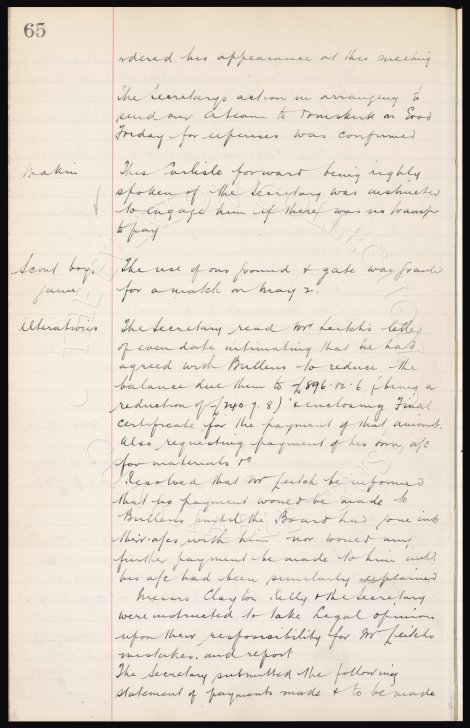 65
ordered his appearance at this meeting
The Secretary's action in arranging to
send our A team to Ormskirk on Good
Friday for expenses was confirmed
Makin
This Carlisle forward being highly
spoken of the Secretary was instructed
to engage him if there was no transfer
to pay
Scout boys
game
The use of our ground & gate was granted
for a match on May 2.
Alterations
The Secretary read Mr Leitch's letter
of even date intimating that he had
agreed with Bullens to reduce the
balance due them to £896.12.6 (being a
reduction of £240.7.8) & enclosing Final
certificate for the payment of that amount.
Also requesting payment of his own a/c
for materials &c
Resolved that Mr Leitch be informed
that no payment would be made to
Bullens until the Board had gone into
their a/cs with him nor would any
further payment be made to him until
his a/c had been similarly explained
Messrs Clayton Kelly & the Secretary
were instructed to take Legal opinion
upon their responsibility for Mr Leitch's
mistakes, and report
The Secretary submitted the following
statement of payments made & to be made
THE EVERTON COLLECTION